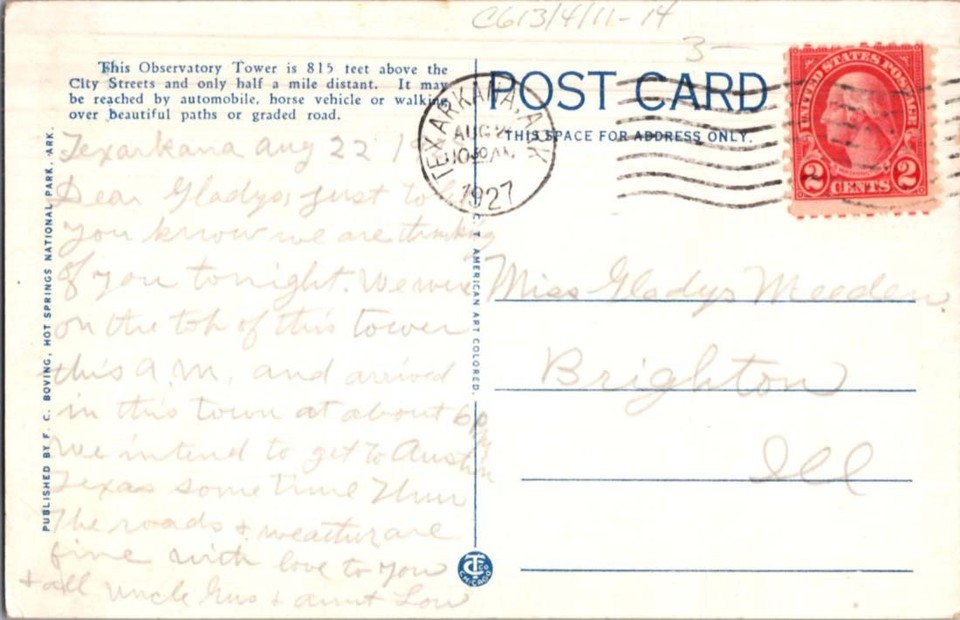 C613/4/11-14
3-
This Observatory Tower is 815 feet above the
City Streets and only half a mile distant. It may
be reached by automobile, horse vehicle or walking
over beautiful paths or graded road.
POST CARD
THIS SPACE FOR ADDRESS ONLY.
TEXARKANA, ARK
AUG
10 30 AM
1927
UNITED STATES POSTAGE
2 CENTS 2
Texarkana Aug 22 19
Dear Gladys Just to let
you know we are thinking
of you tonight. We were
on the top of this tower
this A.M. and arrived
in this town at about 6 PM
We intend to get to Austin
Texas some time Thur
The roads & weather are
fine with love to you
& all Uncle Gus & Aunt Lou
Miss Gladys Meeden
Brighton
Ill
PUBLISHED BY F. C. BOVING, HOT SPRINGS NATIONAL PARK, ARK.
C. T. AMERICAN ART COLORED.
CHICAGO